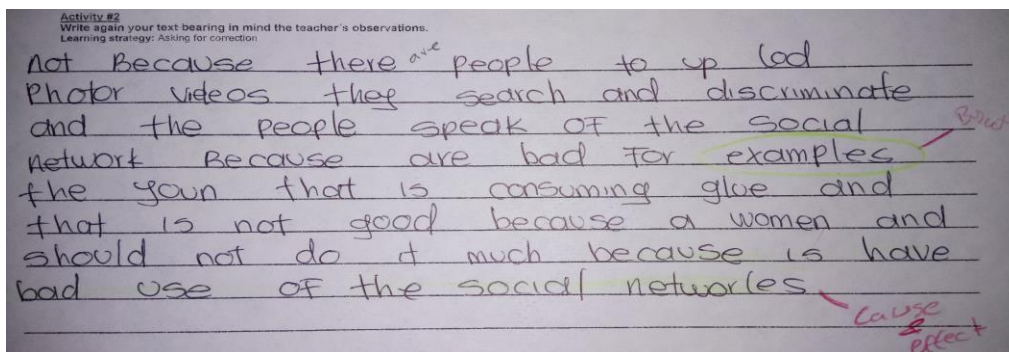 Activity #2
Write again your text bearing in mind the teacher's observations.
Learning strategy: Asking for correction
not Because there are people to up lod
Photor videos they search and discriminate
and the people speak OF the social
network Because are bad For examples
the youn that is consuming glue and
that is not good because a women and
should not do it much because is have
bad use OF the social networles
Cause
&
effect